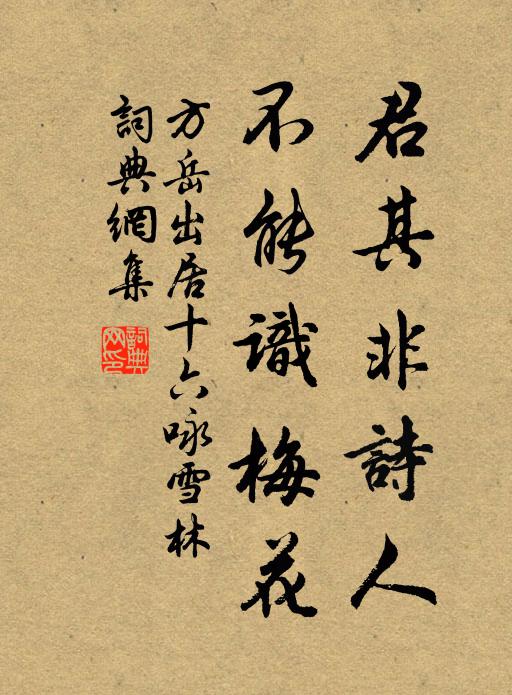 君其非詩人
不能識梅花
方岳出居十六咏雪林
詞典網集
詞典網印